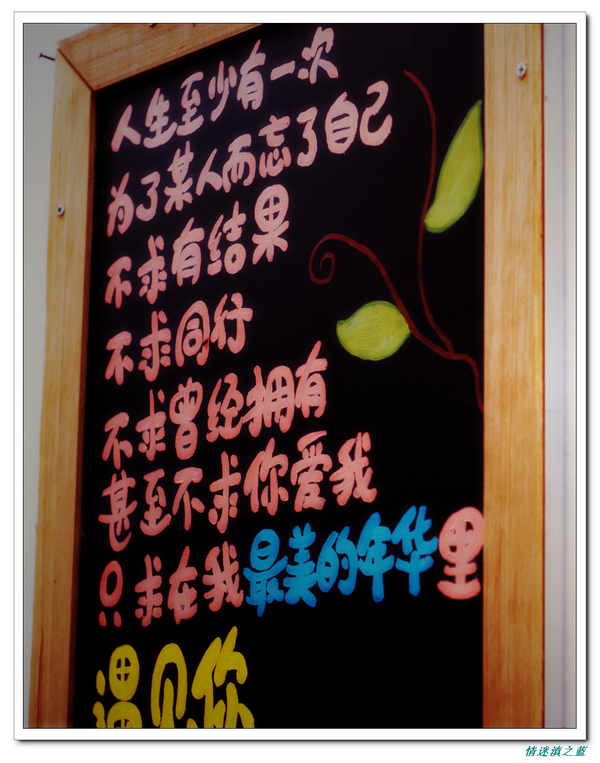 人生至少有一次
为了某人而忘了自己
不求有结果
不求同行
不求曾经拥有
甚至不求你爱我
只求在我最美的年华里
遇见你
情迷滇之蓝